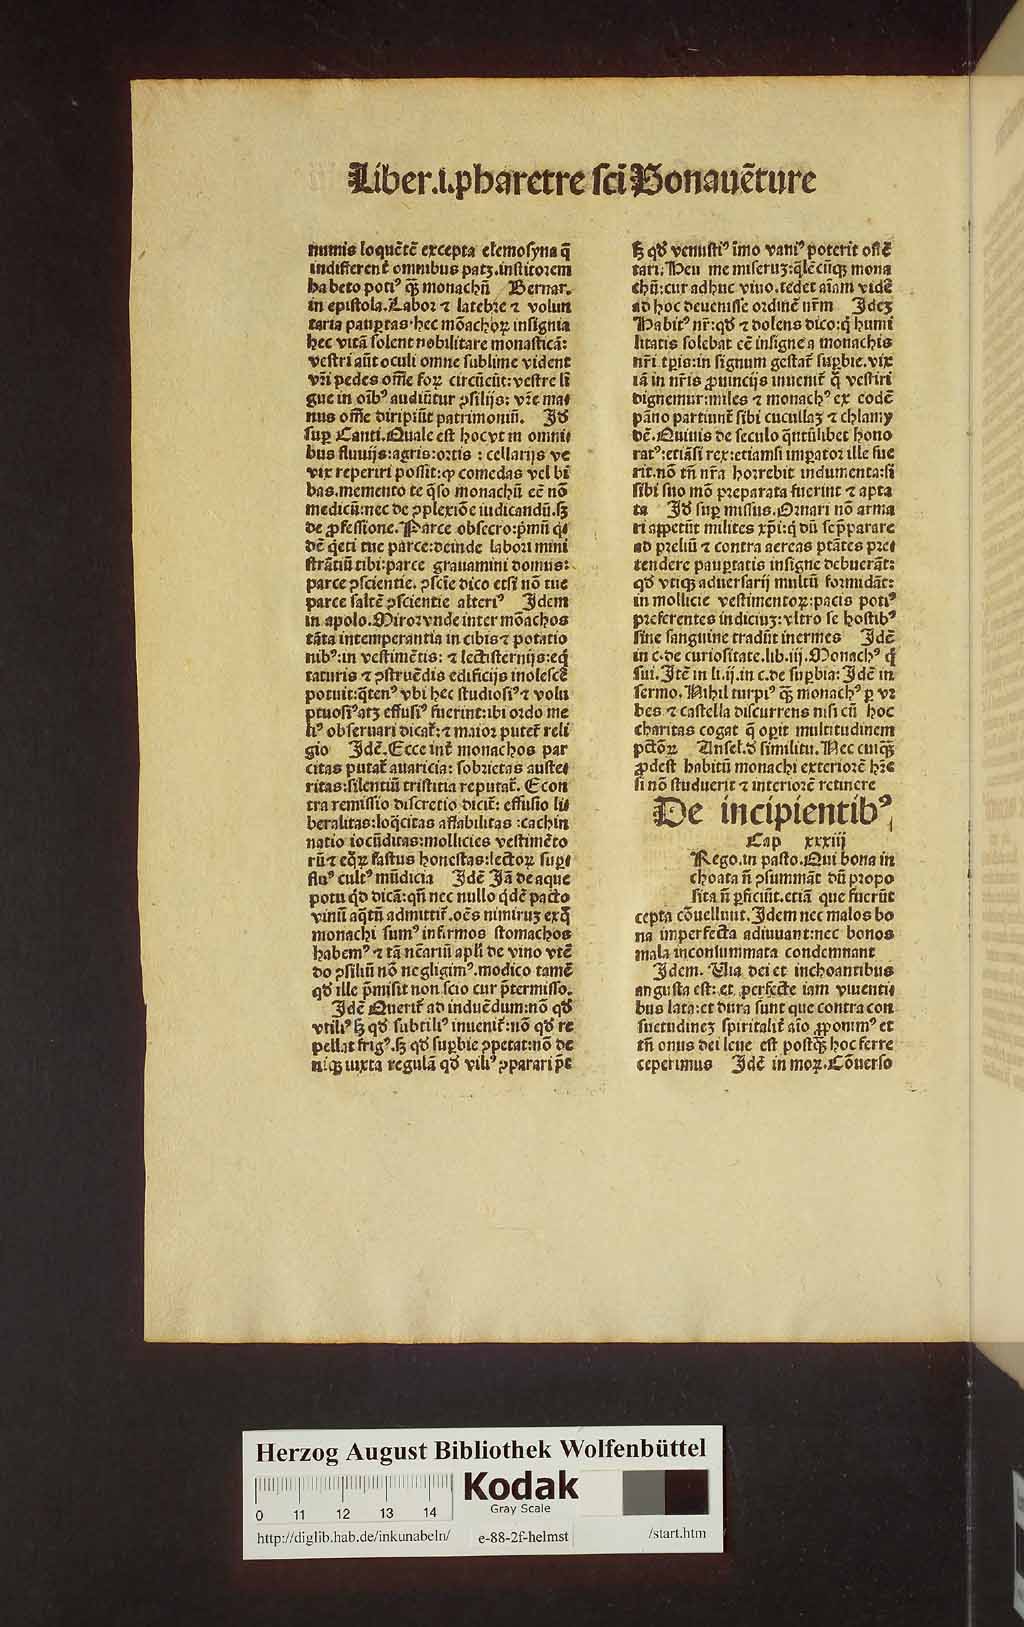 Liber.i.pharetre sci Bonauēture
numis loquētē excepta elemosyna q̄
indifferent̄ omnibus patꝫ.institorem
habeto potiꝰ q̄ꝫ monachū Bernar.
in epistola.Labor ⁊ latebre ⁊ volun
taria paup̄tas·hec mōachoꝝ insignia
hec vitā solent nobilitare monasticā:
vestri aūt oculi omne sublime vident
vr̄i pedes om̄e foꝝ circūeūt: vestre lī
gue in oībꝰ audiūtur ꝯsilijs: vr̄e ma⸗
nus om̄e diripiūt patrimoniū. Id
sup Canti.Quale est hoc vt in omni⸗
bus fluuijs:agris:ortis : cellarijs ve
vix reperiri possīt:ꝙ comedas vel bi
bas.memento te q̄so monachū eē nō
medicū:nec de ꝯplexiōe iudicandū.sꝫ
de ꝓfessione.Parce obsecro:pmū qi
dē q̄eti tue parce:deinde labori mini
strātiū tibi:parce grauamini domus:
parce ꝯscientie. ꝯscīe dico etsi nō tue
parce saltē ꝯscientie alteriꝰ Idem
in apolo.Miror vnde inter mōachos
tāta intemperantia in cibis ⁊ potatio
nibꝰ:in vestimētis: ⁊ lectisternijs:eq̄
taturis ⁊ ꝯstruēdis edificijs inolescē
potuit:q̄tenꝰ vbi hec studiosiꝰ ⁊ volu
ptuosiꝰ atꝫ effusiꝰ fuerint:ibi ordo me
liꝰ obseruari dicat̄:⁊ maior putet̄ reli
gio Idē.Ecce int̄ monachos par
citas putat̄ auaricia: sobrietas auste⸗
ritas:silentiū tristitia reputat̄. Econ
tra remissio discretio dicit̄: effusio li⸗
beralitas:loq̄citas affabilitas :cachin
natio iocūditas:mollicies vestimēto
rū ⁊ eq̄ꝝ fastus honestas:lectoꝝ supi
fluꝰ cultꝰ mūdicia Idē Iā de aque
potu qd dicā:qn̄ nec nullo qdē pacto
vinū aq̄tū admittit̄.oēs nimiruꝫ exq̄
monachi sumꝰ infirmos stomachos
habemꝰ ⁊ tā ncāriū apli de vino vtē
do ꝯsiliū nō negligimꝰ.modico tamē
qd ille p̄misit non scio cur p̄termisso.
Idē Querit̄ ad induēdum:nō qd
vtiliꝰ sꝫ qd subtiliꝰ inuenit̄:nō qd re
pellat frigꝰ.sꝫ qd supbie ꝯpetat:nō de
niqꝫ iuxta regulā qd viliꝰ ꝯparari p̄t
sꝫ qd venustiꝰ īmo vaniꝰ poterit ostē
tari. Heu me miseruꝫ:q̄lēcūqꝫ mona
chū:cur adhuc viuo.tedet aīam vidē
ad hoc deuenisse ordinē nr̄m Ideꝫ
Habitꝰ nr̄:qd ⁊ dolens dico:q̄ humi
litatis solebat eē insigne a monachis
nr̄i tpis:in signum gestat̄ supbie.vix
iā in nr̄is ꝓuincijs inuenit̄ q̄ vestiri
dignemur:miles ⁊ monachꝰ ex codē
pāno partiunt̄ sibi cucullaꝫ ⁊ chlamy
dē.Quiuis de seculo q̄ntūlibet hono
ratꝰ:etiāsi rex:etiamsi impator ille fue
rit.nō tn̄ nr̄a horrebit indumenta:si
sibi suo mō preparata fuerint ⁊ apta
ta Id sup missus.Ornari nō arma
ri appetūt milites xp̄i:q dū se p̄parare
ad preliū ⁊ contra aereas ptātes pre⸗
tendere paupertatis insigne debuerāt:
qd vtiqꝫ aduersarij multū formidāt:
in mollicie vestimentoꝝ:pacis potiꝰ
preferentes indiciuꝫ:vltro se hostibꝰ
sine sanguine tradūt inermes Idē
in c.de curiositate.lib.iij.Monachꝰ q̄
sui. Itē in li.ij.in c.de supbia: Idē in
sermo. Nihil turpiꝰ q̄ꝫ monachꝰ p vr
bes ⁊ castella discurrens nisi cū hoc
charitas cogat q̄ opit multitudinem
pctōꝝ Ansel.d similitu. Nec cuiq̄ꝫ
ꝓdest habitū monachi exteriorē hr̄e
si nō studuerit ⁊ interiorē retinere
De incipientibꝰ
Cap xxxiij
Rego.in pasto.Qui bona in
choata n̄ ꝯsummāt dū propo
sita n̄ pficiūt.etiā que fuerūt
cepta cōuellunt.Idem nec malos bo
na imperfecta adiuuant:nec bonos
mala inconsummata condemnant
Idem. Via dei et inchoantibus
angusta est: et perfecte iam viuenti⸗
bus lata:et dura sunt que contra con
suetudineꝫ spiritalit̄ aīo ꝓponimꝰ et
tn̄ onus dei leue est postq̄ꝫ hoc ferre
ceperimus Idē in moꝝ.Cōuerso
Herzog August Bibliothek Wolfenbüttel
Kodak
Gray Scale
0 11 12 13 14
http://diglib.hab.de/inkunabeln/ e-88-2f-helmst /start.htm